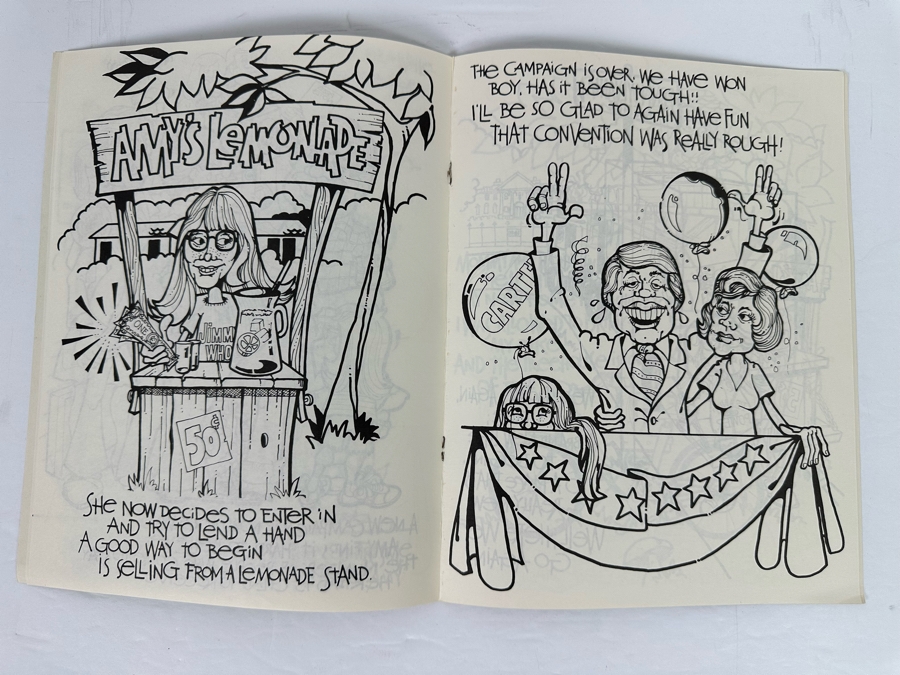 AMY'S LEMONADE
JIMMY
WHO
50¢
SHE NOW DECIDES TO ENTER IN
AND TRY TO LEND A HAND
A GOOD WAY TO BEGIN
IS SELLING FROM A LEMONADE STAND.
THE CAMPAIGN IS OVER, WE HAVE WON
BOY, HAS IT BEEN TOUGH!!
I'LL BE SO GLAD TO AGAIN HAVE FUN
THAT CONVENTION WAS REALLY ROUGH!
CARTE